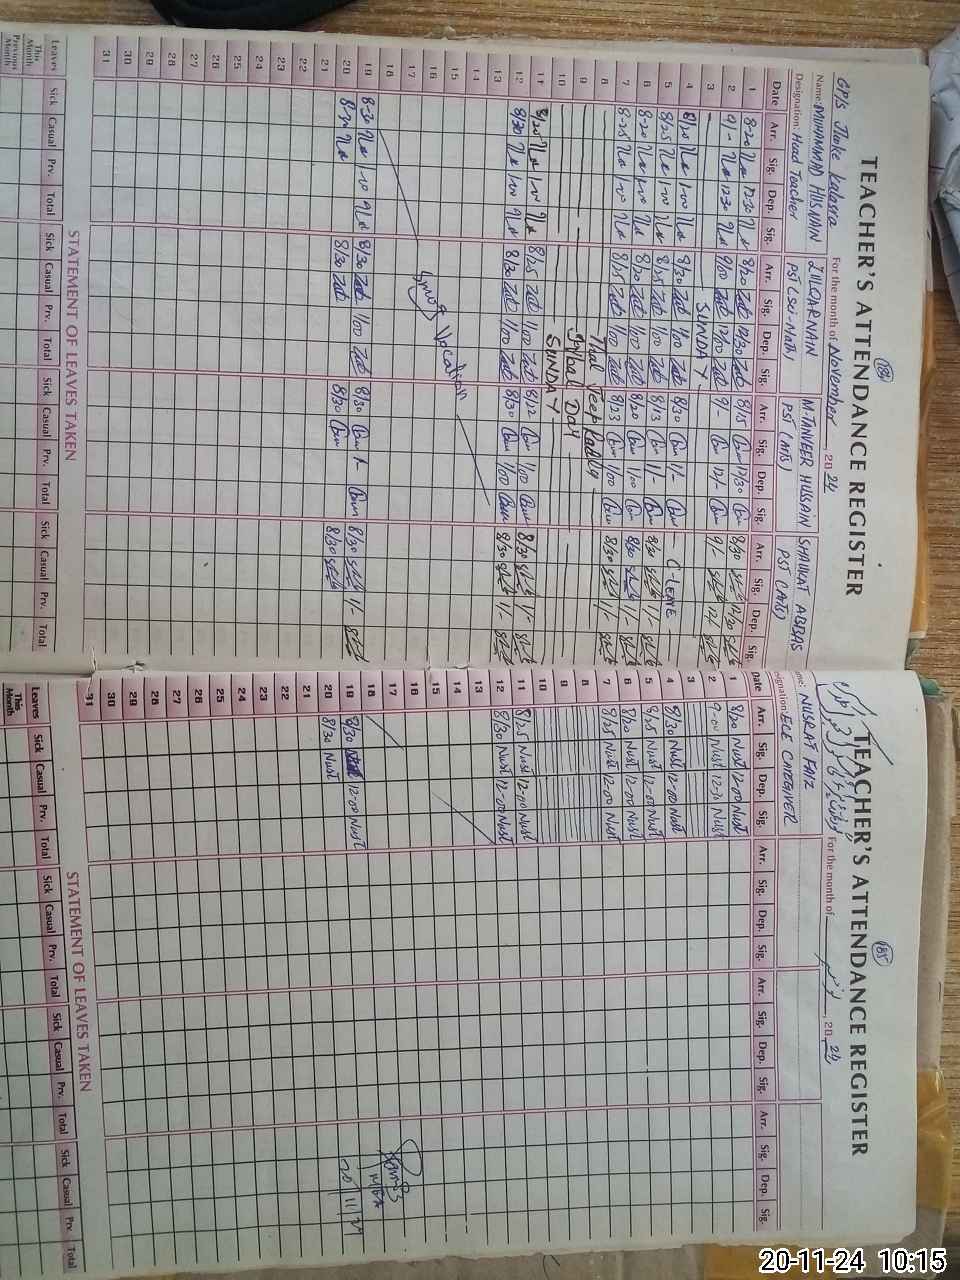 TEACHER'S ATTENDANCE REGISTER
184
GP/S Jhoke Kalasra For the month of November, 2024
Name: MUHAMMAD HUSNAIN ZULQARNAIN M-TANVEER HUSSAIN SHAUKAT ABBAS
Designation: Head Teacher PST (Sci-Math) PST (Arts) PST (Arts)
Date Arr. Sig. Dep. Sig. Arr. Sig. Dep. Sig. Arr. Sig. Dep. Sig. Arr. Sig. Dep. Sig.
1 8-20 12-30 8/20 Zub 12/30 Zub 8/15 12/30 8/30 12/30
2 9/- 12-30 9/00 Zub 12/00 Zub 9/- 12/- 9/- 12/-
3 SUNDAY
4 8/20 1-00 8/30 Zub 1/00 Zub 8/30 1/- C-LEAVE
5 8/25 1-00 8/25 Zub 1/00 Zub 8/13 1/- 8/30 1/-
6 8-20 1-00 8/20 Zub 1/00 Zub 8/20 1/00 8/30 1/-
7 8-25 1-00 8/25 Zub 1/00 Zub 8/23 1/00 8/30 1/-
8 Thal Jeep Rally
9 Iqbal Day
10 SUNDAY
11 8/20 1-00 8/25 Zub 1/00 Zub 8/12 1/00 8/30 1/-
12 8/30 1-00 8/30 Zub 1/00 Zub 8/30 1/00 8/30 1/-
13
14
15
16
17
18
Smog Vacation
19 8-30 1-00 8/30 Zub 1/00 Zub 8/30 1- 8/30 1/-
20 8-30 8/30 Zub 8/30 8/30
21
22
23
24
25
26
27
28
29
30
31
STATEMENT OF LEAVES TAKEN
Leaves Sick Casual Prv. Total Sick Casual Prv. Total Sick Casual Prv. Total Sick Casual Prv. Total
This Month
Previous Month
TEACHER'S ATTENDANCE REGISTER
185
For the month of 2024
Name: NUSRAT FAIZ
Designation: ECE CAREGIVER
Date Arr. Sig. Dep. Sig. Arr. Sig. Dep. Sig. Arr. Sig. Dep. Sig. Arr. Sig. Dep. Sig.
1 8/20 Nust 12-00 Nust
2 9-00 Nust 12-30 Nust
3
4 8/30 Nust 12-00 Nust
5 8/25 Nust 12-00 Nust
6 8/20 Nust 12-00 Nust
7 8/25 Nust 12-00 Nust
8
9
10
11 8/25 Nust 12-00 Nust
12 8/30 Nust 12-00 Nust
13
14
15
16
17
18
19 8/30 Nust 12-00 Nust
20 8/30 Nust
20/11/24
21
22
23
24
25
26
27
28
29
30
31
STATEMENT OF LEAVES TAKEN
Leaves Sick Casual Prv. Total Sick Casual Prv. Total Sick Casual Prv. Total Sick Casual Prv. Total
This Month
20-11-24 10:15